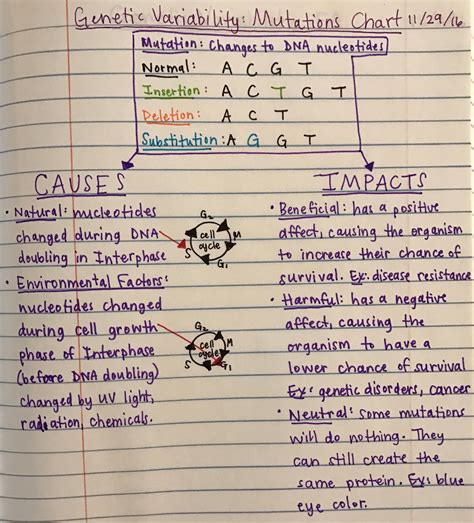 Genetic Variability: Mutations Chart 11/29/16
Mutation: Changes to DNA nucleotides
Normal: A C G T
Insertion: A C T G T
Deletion: A C T
Substitution: A G G T
CAUSES
• Natural: nucleotides
changed during DNA
doubling in Interphase
• Environmental Factors:
nucleotides changed
during cell growth
phase of Interphase
(before DNA doubling)
changed by UV light,
radiation, chemicals.
G2
cell
cycle
M
S
G1
G2
cell
cycle
M
S
G1
IMPACTS
• Beneficial: has a positive
affect, causing the organism
to increase their chance of
survival. Ex: disease resistance
• Harmful: has a negative
affect, causing the
organism to have a
lower chance of survival
Ex: genetic disorders, cancer
• Neutral: some mutations
will do nothing. They
can still create the
same protein. Ex: blue
eye color.